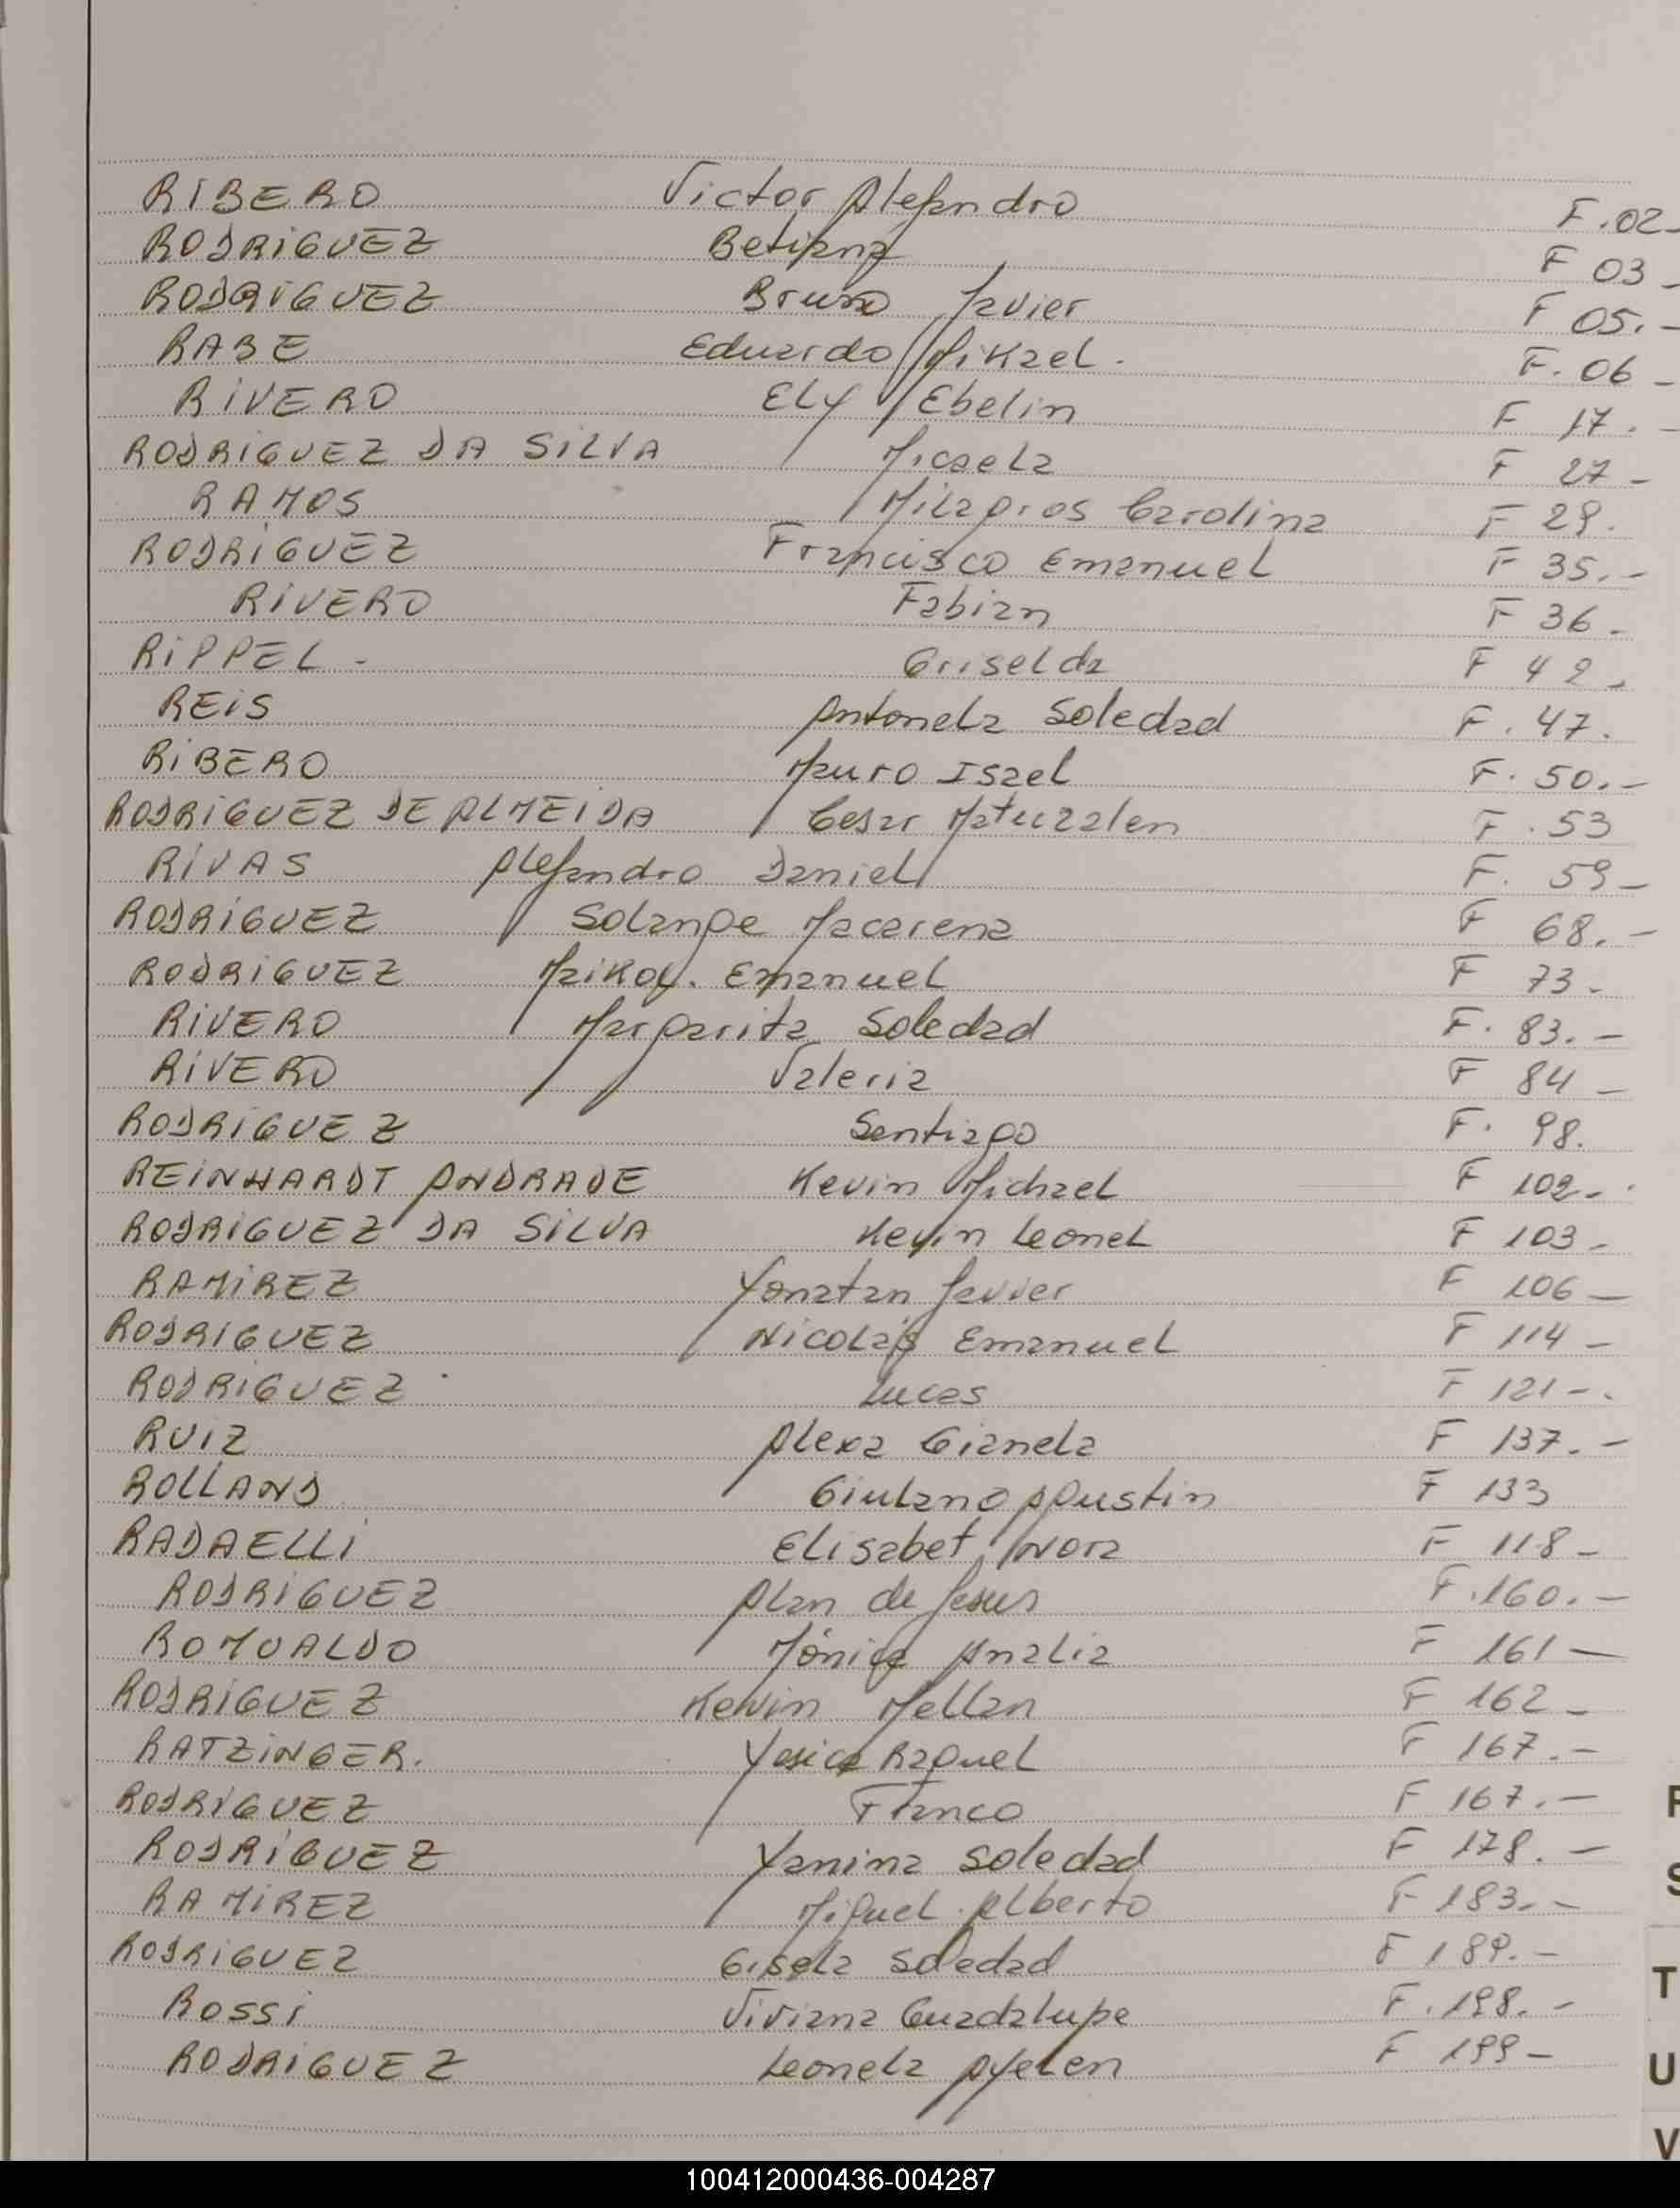 RIBERO Victor Alejandro F.02-
RODRIGUEZ Betiana F 03-
RODRIGUEZ Bruno Javier F 05.-
RABE Eduardo Mikael. F. 06-
RIVERO Ely Ebelin F 17.-
RODRIGUEZ DA SILVA Micaela F 27-
RAMOS Milagros Carolina F 29.
RODRIGUEZ Francisco Emanuel F 35.-
RIVERO Fabian F 36-
RIPPEL- Griselda F 42-
REIS Antonela Soledad F. 47.
RIBERO Mauro Isael F. 50.-
RODRIGUEZ DE ALMEIDA Cesar Matuzalen F. 53
RIVAS Alejandro Daniel F. 59-
RODRIGUEZ Solange Macarena F 68.-
RODRIGUEZ Maikol. Emanuel F 73-
RIVERO Margarita Soledad F. 83.-
RIVERO Valeria F 84-
RODRIGUEZ Santiago F. 98.
REINHARDT ANDRADE Kevin Michael F 102-
RODRIGUEZ DA SILVA Kevin Leonel F 103-
RAMIREZ Yonatan Javier F 106-
RODRIGUEZ Nicolás Emanuel F 114-
RODRIGUEZ Lucas F 121-.
RUIZ Alexa Gianela F 137.-
ROLLAND Giuliano Agustin F 133
RADAELLI Elisabet Nora F 118-
RODRIGUEZ Alan de Jesus F.160.-
ROMUALDO Mónica Analia F 161-
RODRIGUEZ Kevin Mellan F 162-
RATZINGER. Yesica Raquel F 167.-
RODRIGUEZ Franco F 167.-
RODRIGUEZ Yanina Soledad F 178.-
RAMIREZ Miguel Alberto F 183.-
RODRIGUEZ Gisela Soledad F 189.-
ROSSI Viviana Guadalupe F. 198.-
RODRIGUEZ Leonela Ayelen F 199-
S
T
U
V
100412000436-004287